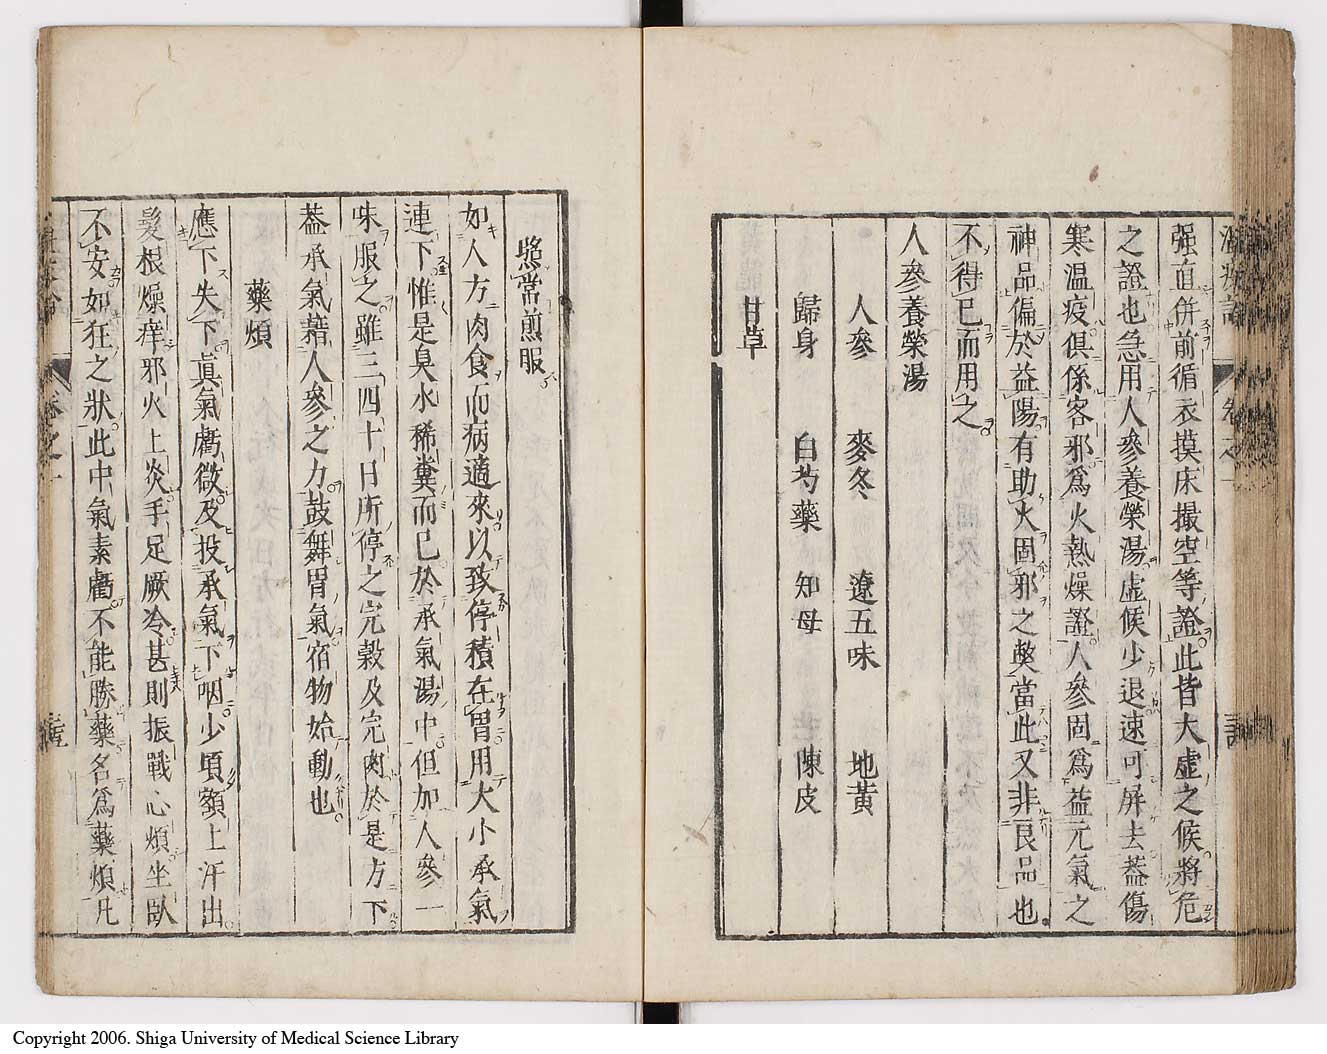 强直併前循衣摸床撮空等證此皆大虛之候將危
之證也急用人參養榮湯虛候少退速可屏去蓋傷
寒溫疫俱係客邪爲火熱燥證人參固爲益元氣之
神品偏於益陽有助火固邪之獘當此又非良品也
不得已而用之
人參養榮湯
人參 麥冬 遼五味 地黃
歸身 白芍藥 知母 陳皮
甘草
照常煎服
如人方肉食而病適來以致停積在胃用大小承氣
連下惟是臭水稀糞而已於承氣湯中但加人參一
味服之雖三四十日所停之完穀及完肉於是方下
蓋承氣藉人參之力鼓舞胃氣宿物始動也
藥煩
應下失下眞氣虧微及投承氣下咽少頃額上汗出
髮根燥痒邪火上炎手足厥冷甚則振戰心煩坐臥
不安如狂之狀此中氣素虧不能勝藥名爲藥煩凡
Copyright 2006. Shiga University of Medical Science Library